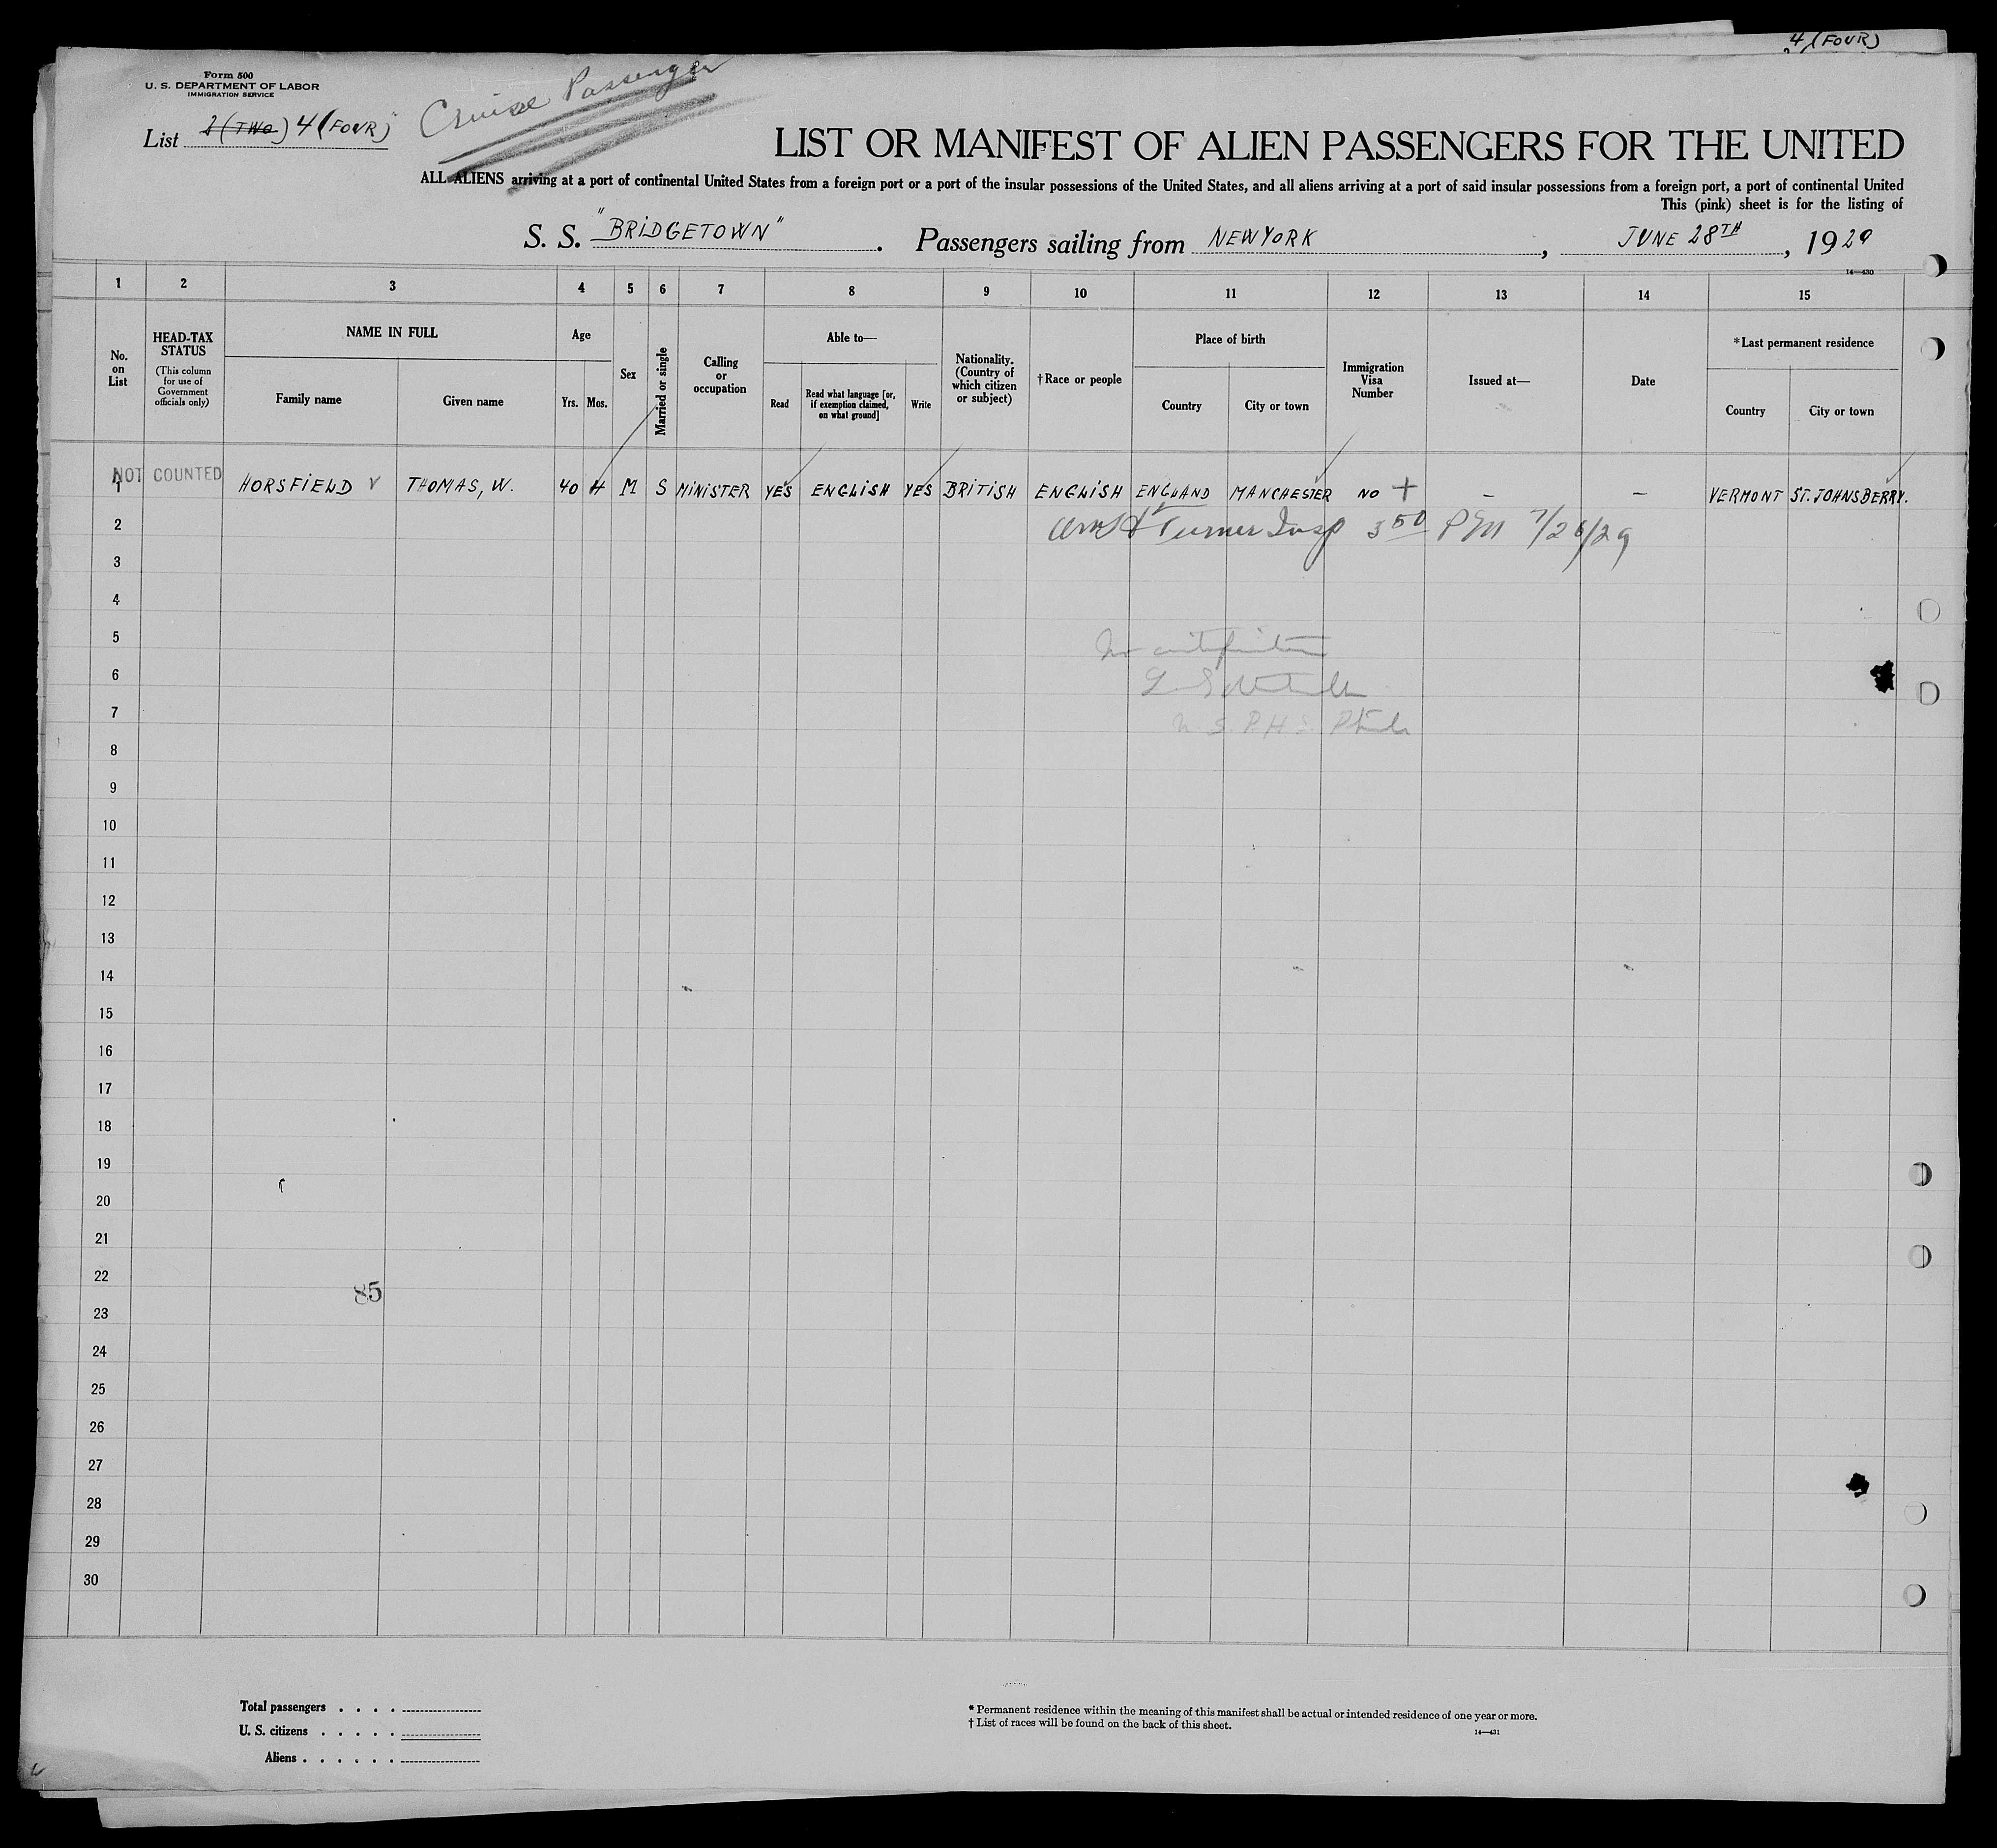 4 (FOUR)
Form 500
U. S. DEPARTMENT OF LABOR
IMMIGRATION SERVICE
Cruise Passenger
List 2 (TWO) 4 (FOUR)
LIST OR MANIFEST OF ALIEN PASSENGERS FOR THE UNITED
ALL ALIENS arriving at a port of continental United States from a foreign port or a port of the insular possessions of the United States, and all aliens arriving at a port of said insular possessions from a foreign port, a port of continental United
This (pink) sheet is for the listing of
S. S. "BRIDGETOWN". Passengers sailing from NEW YORK, JUNE 28TH, 1929
14—430
1 2 3 4 5 6 7 8 9 10 11 12 13 14 15
No. on List
HEAD-TAX STATUS
(This column for use of Government officials only)
NAME IN FULL
Family name
Given name
Age
Yrs. Mos.
Sex
Married or single
Calling or occupation
Able to—
Read
Read what language [or, if exemption claimed, on what ground]
Write
Nationality. (Country of which citizen or subject)
†Race or people
Place of birth
Country
City or town
Immigration Visa Number
Issued at—
Date
*Last permanent residence
Country
City or town
NOT COUNTED
1 HORSFIELD V THOMAS, W. 40 4 M S MINISTER YES ENGLISH YES BRITISH ENGLISH ENGLAND MANCHESTER NO + – – VERMONT ST. JOHNSBERRY.
2 Turner Insp 3 50 PM 7/26/29
3
4
5
6
7 U.S.P.H.S. Phila
8
9
10
11
12
13
14
15
16
17
18
19
20
21
22
85
23
24
25
26
27
28
29
30
Total passengers . . . .
U. S. citizens . . . . .
Aliens . . . . . .
* Permanent residence within the meaning of this manifest shall be actual or intended residence of one year or more.
† List of races will be found on the back of this sheet.
14—431